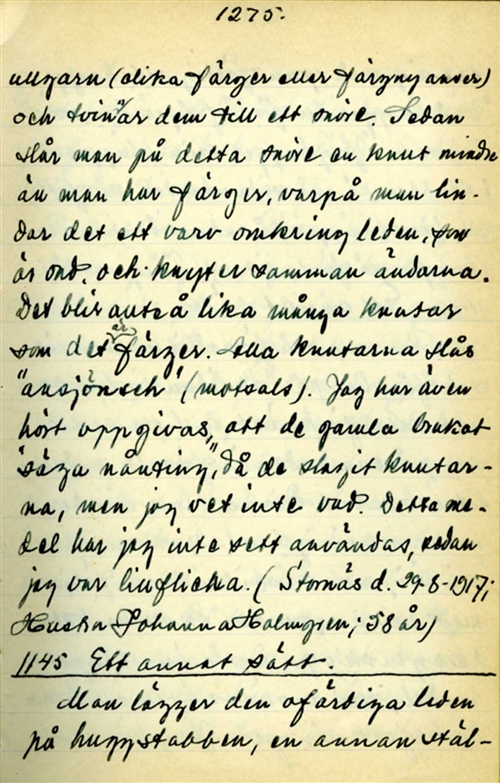 1275.
ullgarn (olika färger eller färgnyanser)
och tvinar dem till ett snöre. Sedan
slår man på detta snöre en knut mindre
än man har färger, varpå man lin-
dar det ett varv omkring leden, som
är ond, och knyter samman ändarna.
Det blir alltså lika många knutar
som det är färger. Alla knutarna slås
"ansjönsch" (motsals). Jag har även
hört uppgivas, att de gamla brukat
"säga nånting", då de slagit knutar-
na, men jag vet inte vad. Detta me-
del har jag inte sett användas, sedan
jag var linflicka. (Stornäs d. 29-8-1917;
Hustru Johanna Holmgren; 58 år)
1145 Ett annat sätt.
Man lägger den ofärdiga leden
på huggstabben, en annan stäl-